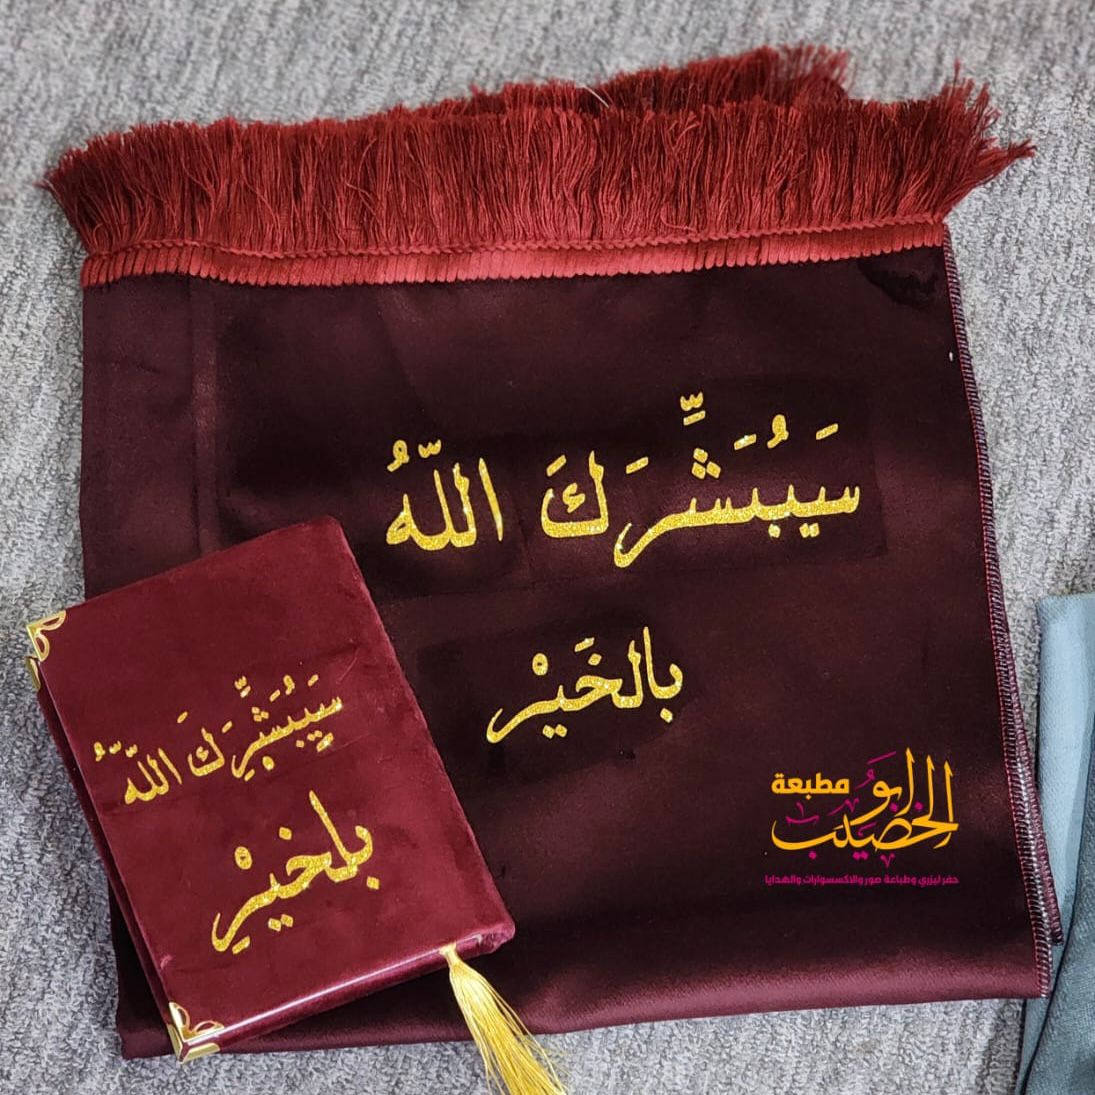 سَيَبُشَّرِكَ اللّهُ
بالخَيْر
سَيَبُشَّرِكَ اللّهُ
بلخيرِْ
مطبعة
ابو الخصيب
حفر ليزري وطباعة صور والاكسسوارات والهدايا